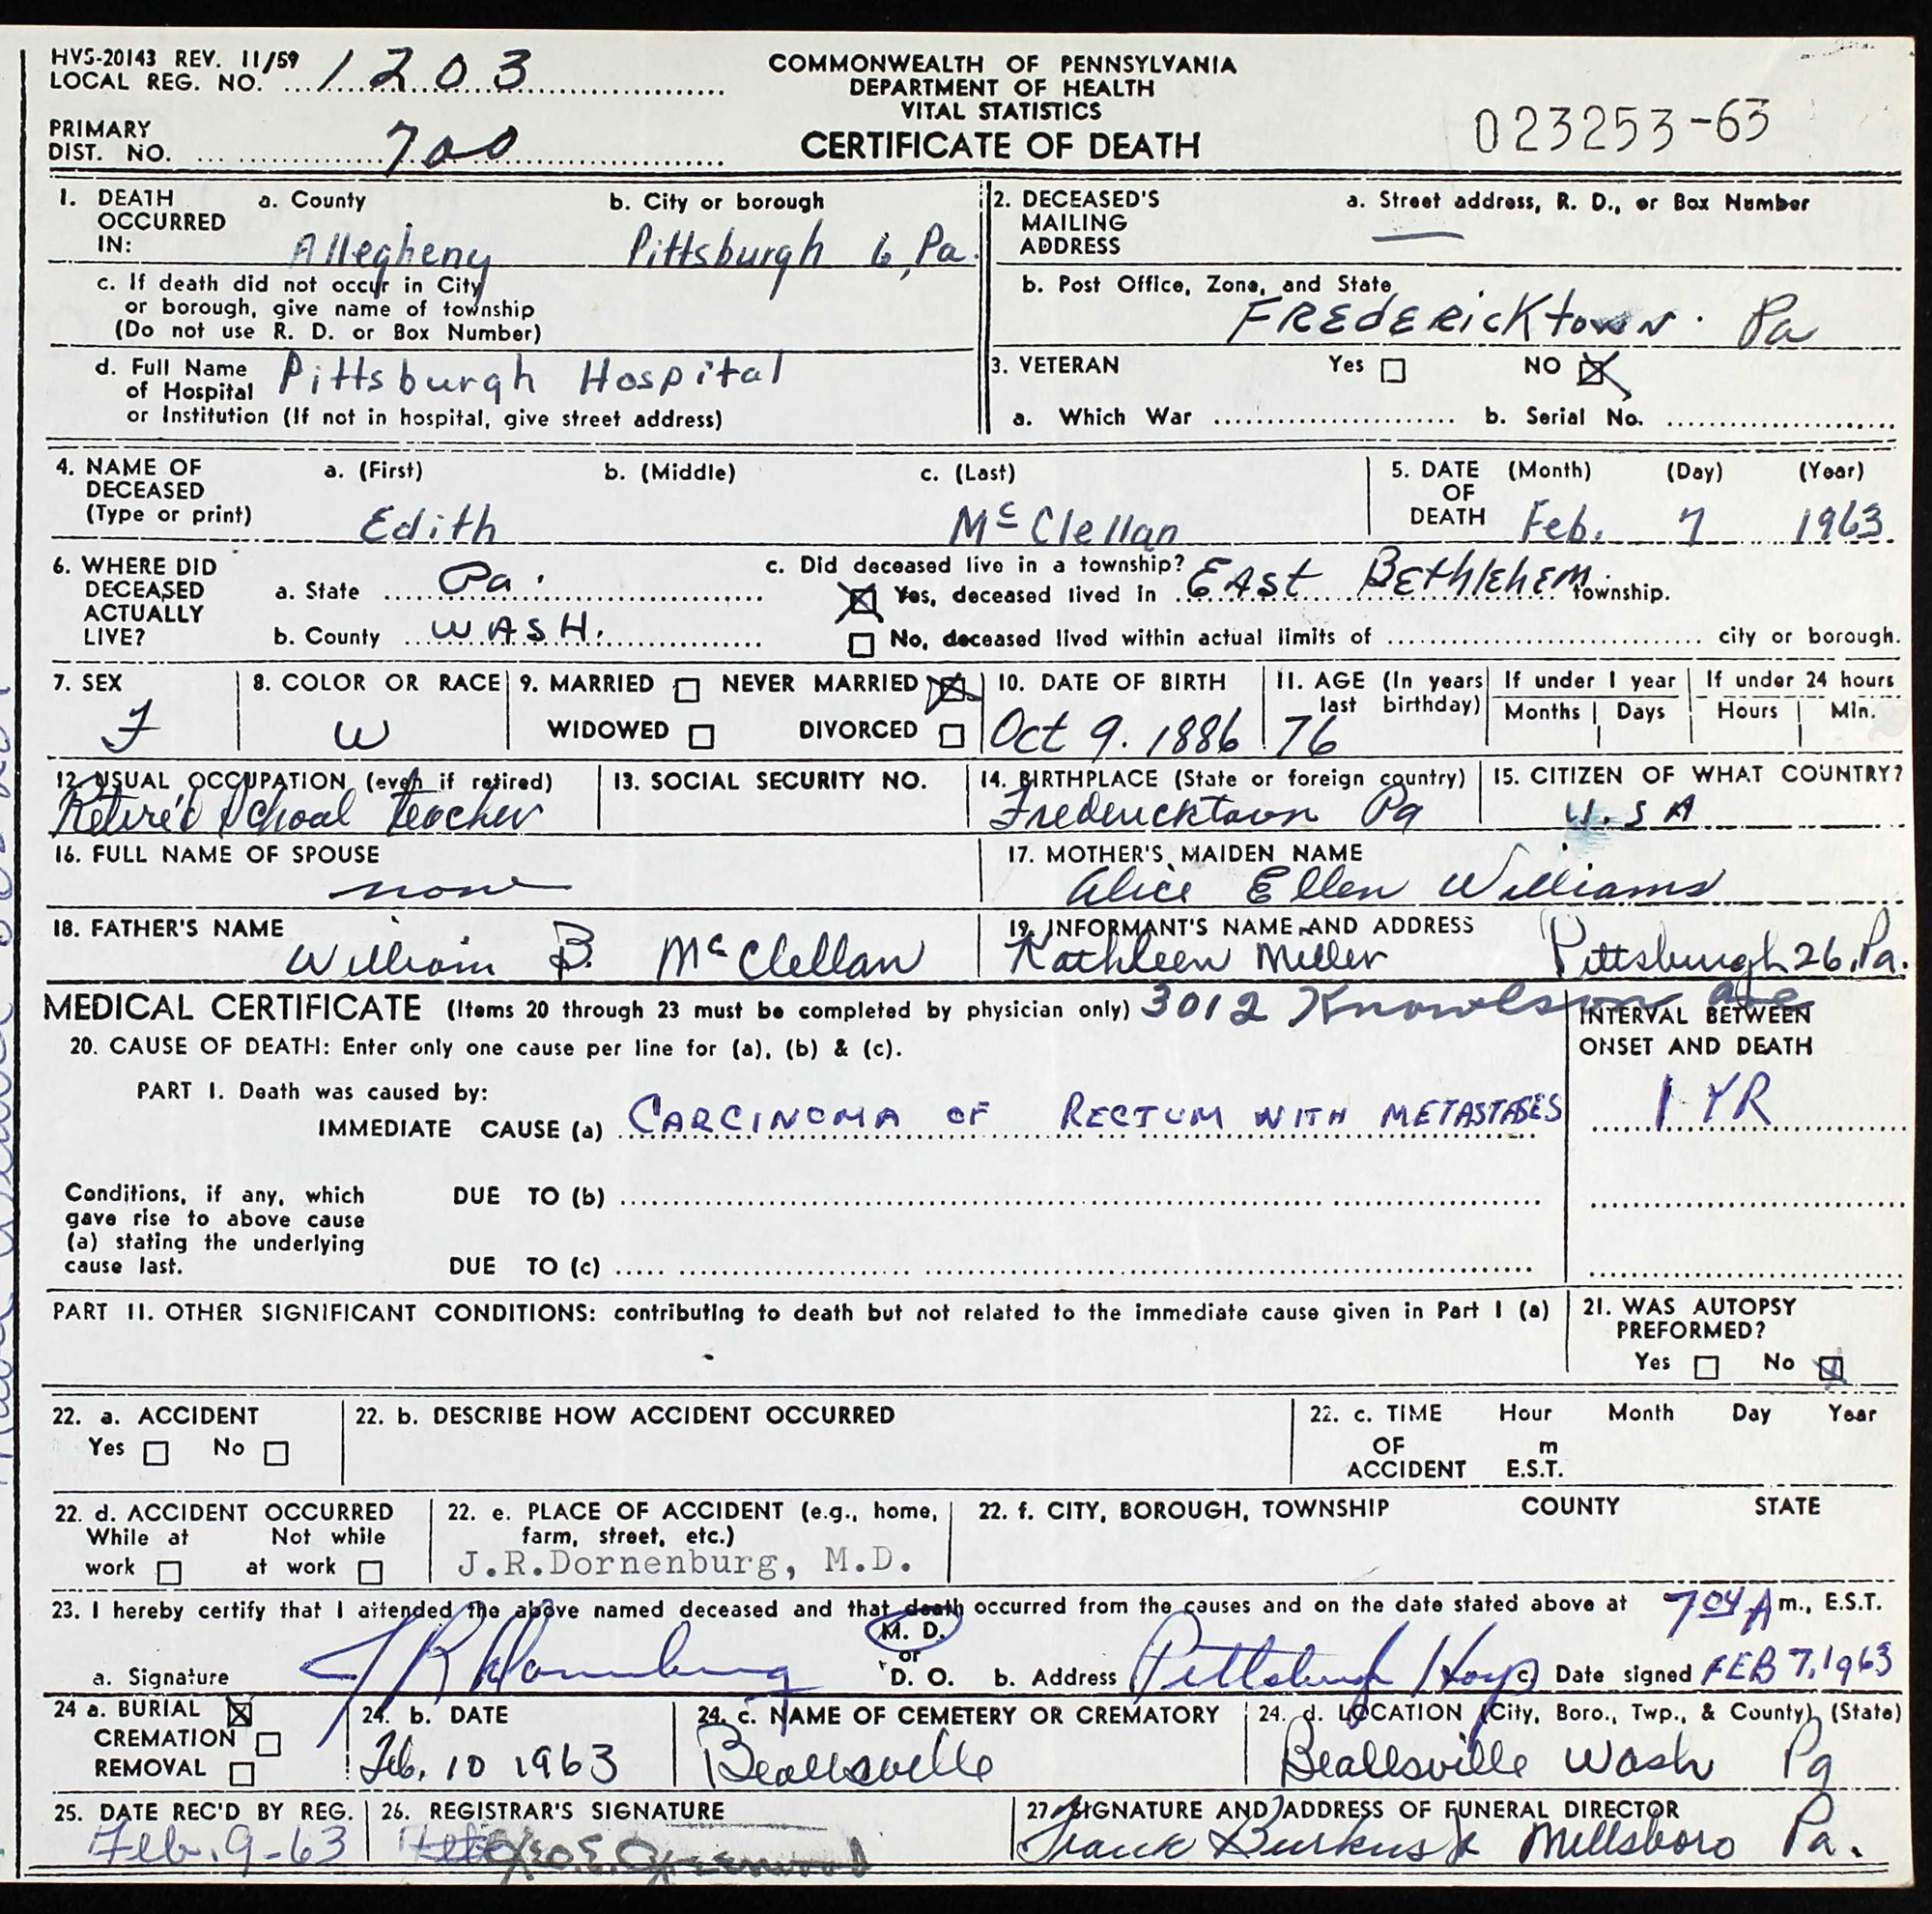 HVS-20143 REV. 11/59
LOCAL REG. NO. 1203
COMMONWEALTH OF PENNSYLVANIA
DEPARTMENT OF HEALTH
VITAL STATISTICS
CERTIFICATE OF DEATH
023253-63
PRIMARY
DIST. NO. 700
1. DEATH OCCURRED IN:
a. County
Allegheny
b. City or borough
Pittsburgh 6, Pa.
c. If death did not occur in City
or borough, give name of township
(Do not use R. D. or Box Number)
d. Full Name
of Hospital
or Institution (If not in hospital, give street address)
Pittsburgh Hospital
2. DECEASED'S
MAILING
ADDRESS
a. Street address, R. D., or Box Number
—
b. Post Office, Zone, and State
FREdERicktown. Pa
3. VETERAN Yes NO
a. Which War b. Serial No.
4. NAME OF
DECEASED
(Type or print)
a. (First) b. (Middle) c. (Last)
Edith McClellan
5. DATE OF DEATH (Month) (Day) (Year)
Feb. 7 1963
6. WHERE DID
DECEASED
ACTUALLY
LIVE?
a. State Pa.
b. County WASH.
c. Did deceased live in a township?
Yes, deceased lived in EAst BEthlehEm township.
No, deceased lived within actual limits of city or borough.
7. SEX
F
8. COLOR OR RACE
W
9. MARRIED NEVER MARRIED
WIDOWED DIVORCED
10. DATE OF BIRTH
Oct 9. 1886
11. AGE (In years
last birthday)
76
If under 1 year
Months Days
If under 24 hours
Hours Min.
12. USUAL OCCUPATION (even if retired)
Retired School teacher
13. SOCIAL SECURITY NO.
14. BIRTHPLACE (State or foreign country)
Fredericktown Pa
15. CITIZEN OF WHAT COUNTRY?
U.S A
16. FULL NAME OF SPOUSE
none
17. MOTHER'S MAIDEN NAME
Alice Ellen Williams
18. FATHER'S NAME
William B. McClellan
19. INFORMANT'S NAME AND ADDRESS
Kathleen Miller Pittsburgh 26, Pa.
3012 Knowlson Ave
MEDICAL CERTIFICATE (Items 20 through 23 must be completed by physician only)
20. CAUSE OF DEATH: Enter only one cause per line for (a), (b) & (c).
INTERVAL BETWEEN
ONSET AND DEATH
PART I. Death was caused by:
IMMEDIATE CAUSE (a) CARCINOMA OF RECTUM WITH METASTASES
1 YR
Conditions, if any, which
gave rise to above cause
(a) stating the underlying
cause last.
DUE TO (b)
DUE TO (c)
PART II. OTHER SIGNIFICANT CONDITIONS: contributing to death but not related to the immediate cause given in Part I (a)
21. WAS AUTOPSY
PREFORMED?
Yes No
22. a. ACCIDENT
Yes No
22. b. DESCRIBE HOW ACCIDENT OCCURRED
22. c. TIME
OF
ACCIDENT
Hour Month Day Year
m
E.S.T.
22. d. ACCIDENT OCCURRED
While at Not while
work at work
22. e. PLACE OF ACCIDENT (e.g., home,
farm, street, etc.)
J.R.Dornenburg, M.D.
22. f. CITY, BOROUGH, TOWNSHIP COUNTY STATE
23. I hereby certify that I attended the above named deceased and that death occurred from the causes and on the date stated above at 704 A m., E.S.T.
a. Signature J R Dornenburg
M. D.
or
D. O.
b. Address Pittsburgh Hosp
c) Date signed FEB 7, 1963
24 a. BURIAL
CREMATION
REMOVAL
24. b. DATE
Feb. 10 1963
24. c. NAME OF CEMETERY OR CREMATORY
Beallsville
24. d. LOCATION (City, Boro., Twp., & County) (State)
Beallsville Wash Pa
25. DATE REC'D BY REG.
Feb. 9-63
26. REGISTRAR'S SIGNATURE
Geo. E. Greenwood
27. SIGNATURE AND ADDRESS OF FUNERAL DIRECTOR
Frank Burkus Jr Millsboro Pa.